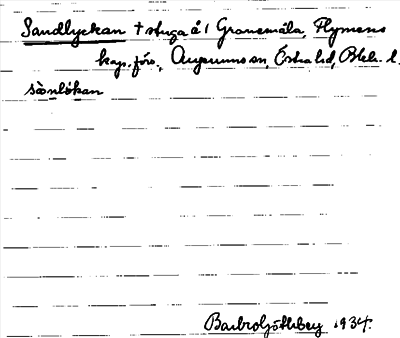 Sandlyckan † stuga å 1 Granemåla, Flymens
kap. förs., Augerums sn, Östra hd, Blek. l.
sànlỳkan
Barbro Söderberg 1934.